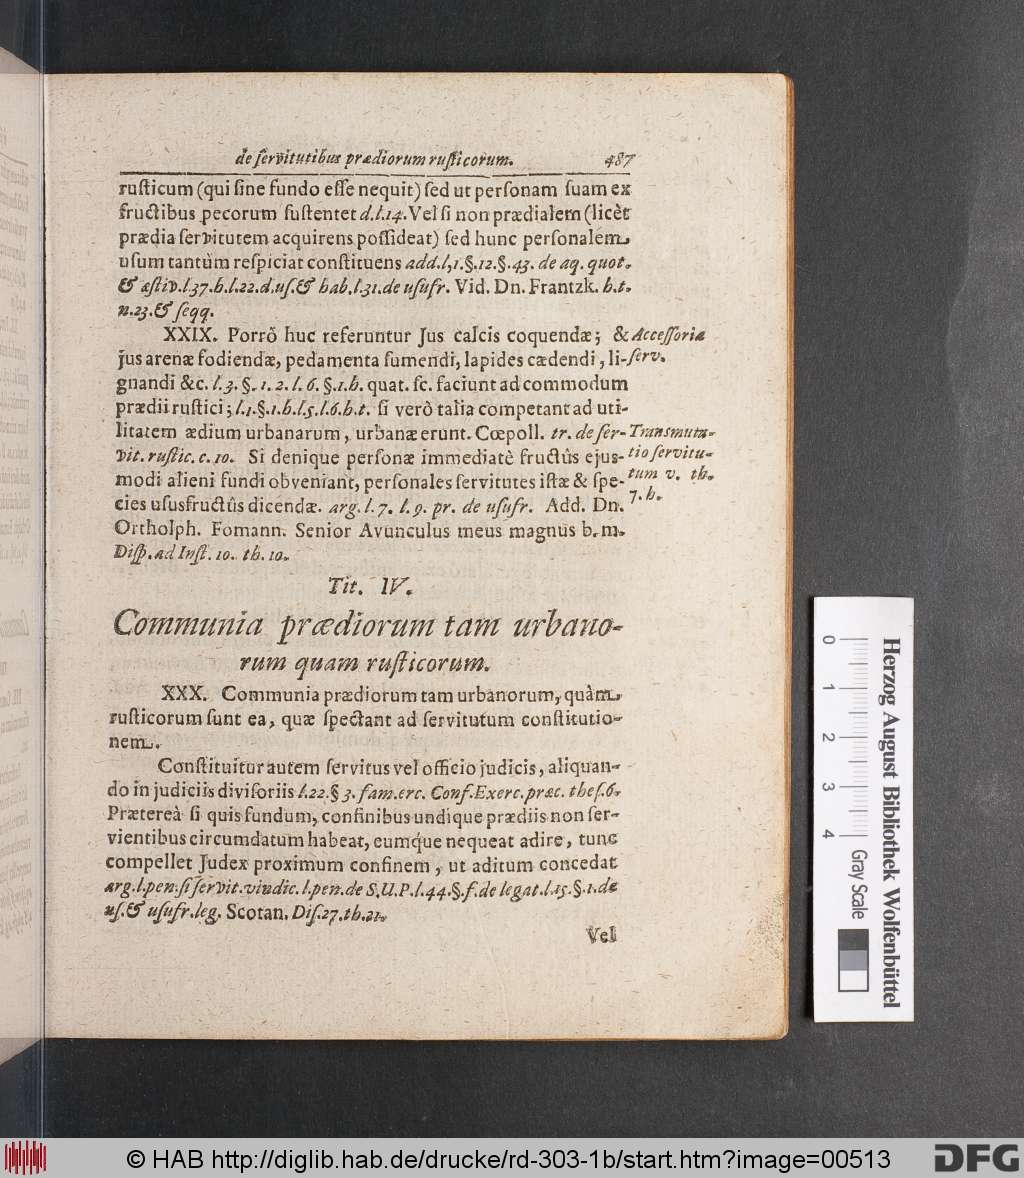 de servitutibus prædiorum rusticorum. 487
rusticum (qui sine fundo esse nequit) sed ut personam suam ex
fructibus pecorum sustentet d.l.14. Vel si non prædialem (licèt
prædia servitutem acquirens possideat) sed hunc personalem
usum tantùm respiciat constituens add.l,1.§.12.§.43. de aq. quot.
& æstiv.l.37.h.l.22.d.us.& hab.l.31.de usufr. Vid. Dn. Frantzk. h.t.
n.23.& seqq.
XXIX. Porrò huc referuntur Jus calcis coquendæ; & Accessoriæ
jus arenæ fodiendæ, pedamenta sumendi, lapides cædendi, li- serv.
gnandi &c. l. 3. §. 1. 2. l. 6. §.1.h. quat. sc. faciunt ad commodum
prædii rustici; l.1.§.1.h.l.5.l.6.h.t. si verò talia competant ad uti-
litatem ædium urbanarum, urbanæ erunt. Cœpoll. tr. de ser- Transmuta-
vit. rustic. c. 10. Si denique personæ immediatè fructûs ejus- tio servitu-
modi alieni fundi obveniant, personales servitutes istæ & spe- tum v. th.
cies ususfructûs dicendæ. arg. l. 7. l. 9. pr. de usufr. Add. Dn. 7. h.
Ortholph. Fomann. Senior Avunculus meus magnus b. m.
Disp. ad Inst. 10. th. 10.
Tit. IV.
Communia prædiorum tam urbano-
rum quam rusticorum.
XXX. Communia prædiorum tam urbanorum, quàm
rusticorum sunt ea, quæ spectant ad servitutum constitutio-
nem.
Constituitur autem servitus vel officio judicis, aliquan-
do in judiciis divisoriis l.22.§ 3. fam.erc. Conf. Exerc. præc. thes.6.
Prætereà si quis fundum, confinibus undique prædiis non ser-
vientibus circumdatum habeat, eumque nequeat adire, tunc
compellet Judex proximum confinem, ut aditum concedat
arg.l.pen.si servit.vindic.l.pen.de S.U.P.l.44.§.f.de legat.l.15.§.1.de
us.& usufr.leg. Scotan. Dis.27.th.21.
Vel
0 1 2 3 4
Gray Scale
Herzog August Bibliothek Wolfenbüttel
© HAB http://diglib.hab.de/drucke/rd-303-1b/start.htm?image=00513
DFG